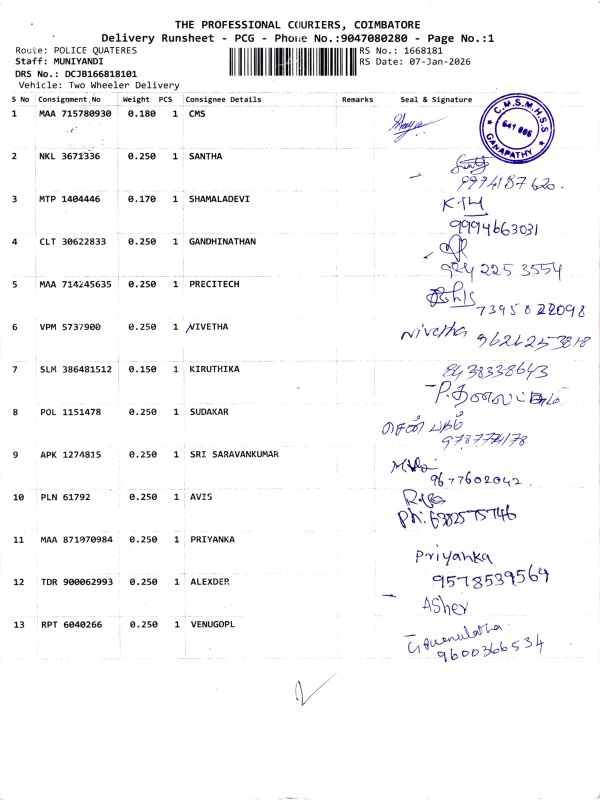 THE PROFESSIONAL COURIERS, COIMBATORE
Delivery Runsheet - PCG - Phone No.:9047080280 - Page No.:1
Route: POLICE QUATERES
RS No.: 1668181
Staff: MUNIYANDI
RS Date: 07-Jan-2026
DRS No.: DCJB166818101
Vehicle: Two Wheeler Delivery
S No Consignment No Weight PCS Consignee Details Remarks Seal & Signature
1 MAA 715780930 0.180 1 CMS
C.M.S.M.H.S.S
641 006
GANAPATHY
2 NKL 3671336 0.250 1 SANTHA
9994187620.
3 MTP 1404446 0.170 1 SHAMALADEVI
9994663031
4 CLT 30622833 0.250 1 GANDHINATHAN
924 225 3554
5 MAA 714245635 0.250 1 PRECITECH
7395822098
6 VPM 5737900 0.250 1 NIVETHA
Nivetha 9626253818
7 SLM 386481512 0.150 1 KIRUTHIKA
8438338643
8 POL 1151478 0.250 1 SUDAKAR
9787774178
9 APK 1274815 0.250 1 SRI SARAVANKUMAR
9677602042
10 PLN 61792 0.250 1 AVIS
Ph:
11 MAA 871970984 0.250 1 PRIYANKA
Priyanka
9578539569
12 TDR 900062993 0.250 1 ALEXDER
Asher
13 RPT 6040266 0.250 1 VENUGOPL
9600366534